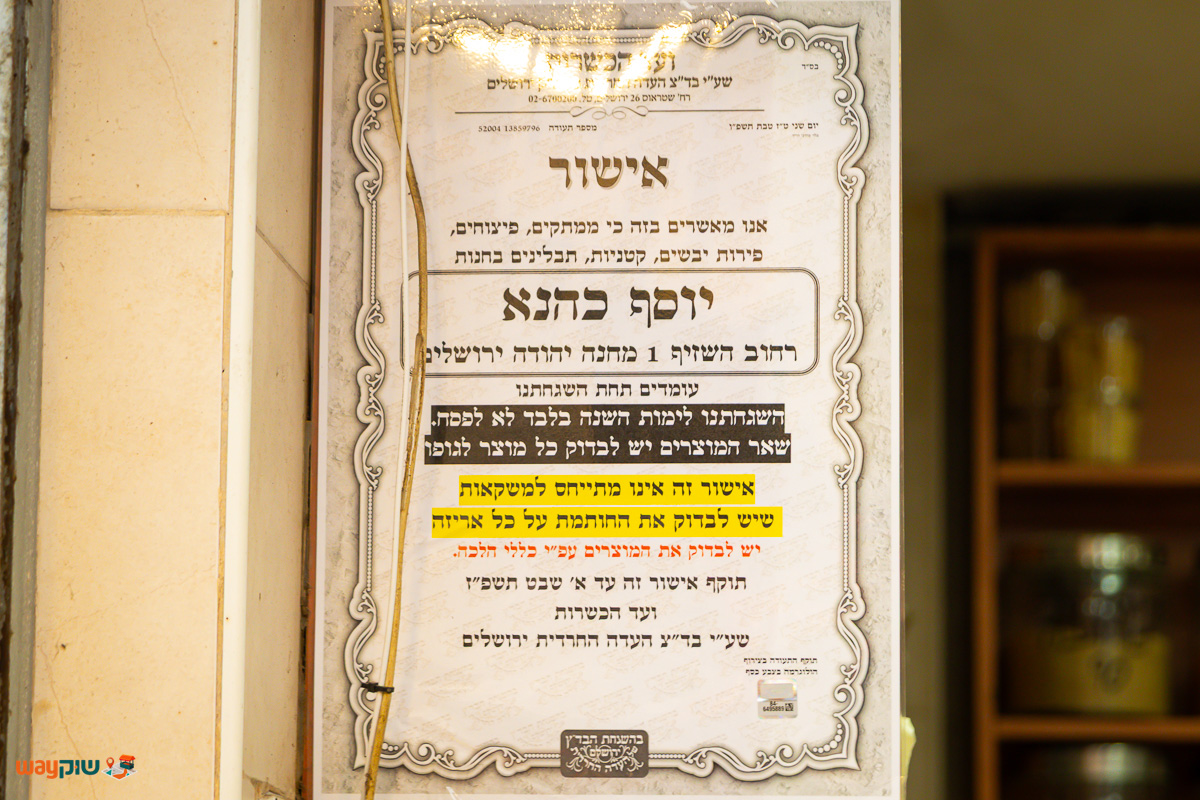 בס״ד
ועד הכשרות
שע״י בד״צ העדה החרדית ירושלים
רח׳ שטראוס 26 ירושלים, טל. 02-6700200
יום שני ט״ז טבת תשפ״ו
מספר תעודה 13859796 52004
אישור
אנו מאשרים בזה כי ממתקים, פיצוחים,
פירות יבשים, קטניות, תבלינים בחנות
יוסף כהנא
רחוב השזיף 1 מחנה יהודה ירושלים
עומדים תחת השגחתנו
השגחתנו לימות השנה בלבד לא לפסח.
שאר המוצרים יש לבדוק כל מוצר לגופו
אישור זה אינו מתייחס למשקאות
שיש לבדוק את החותמת על כל אריזה
יש לבדוק את המוצרים עפ״י כללי הלכה.
תוקף אישור זה עד א׳ שבט תשפ״ז
ועד הכשרות
שע״י בד״צ העדה החרדית ירושלים
תוקף התעודה בצירוף
הולוגרמה בצבע כסף
בהשגחת הבד״ץ
ירושלים
שוקway